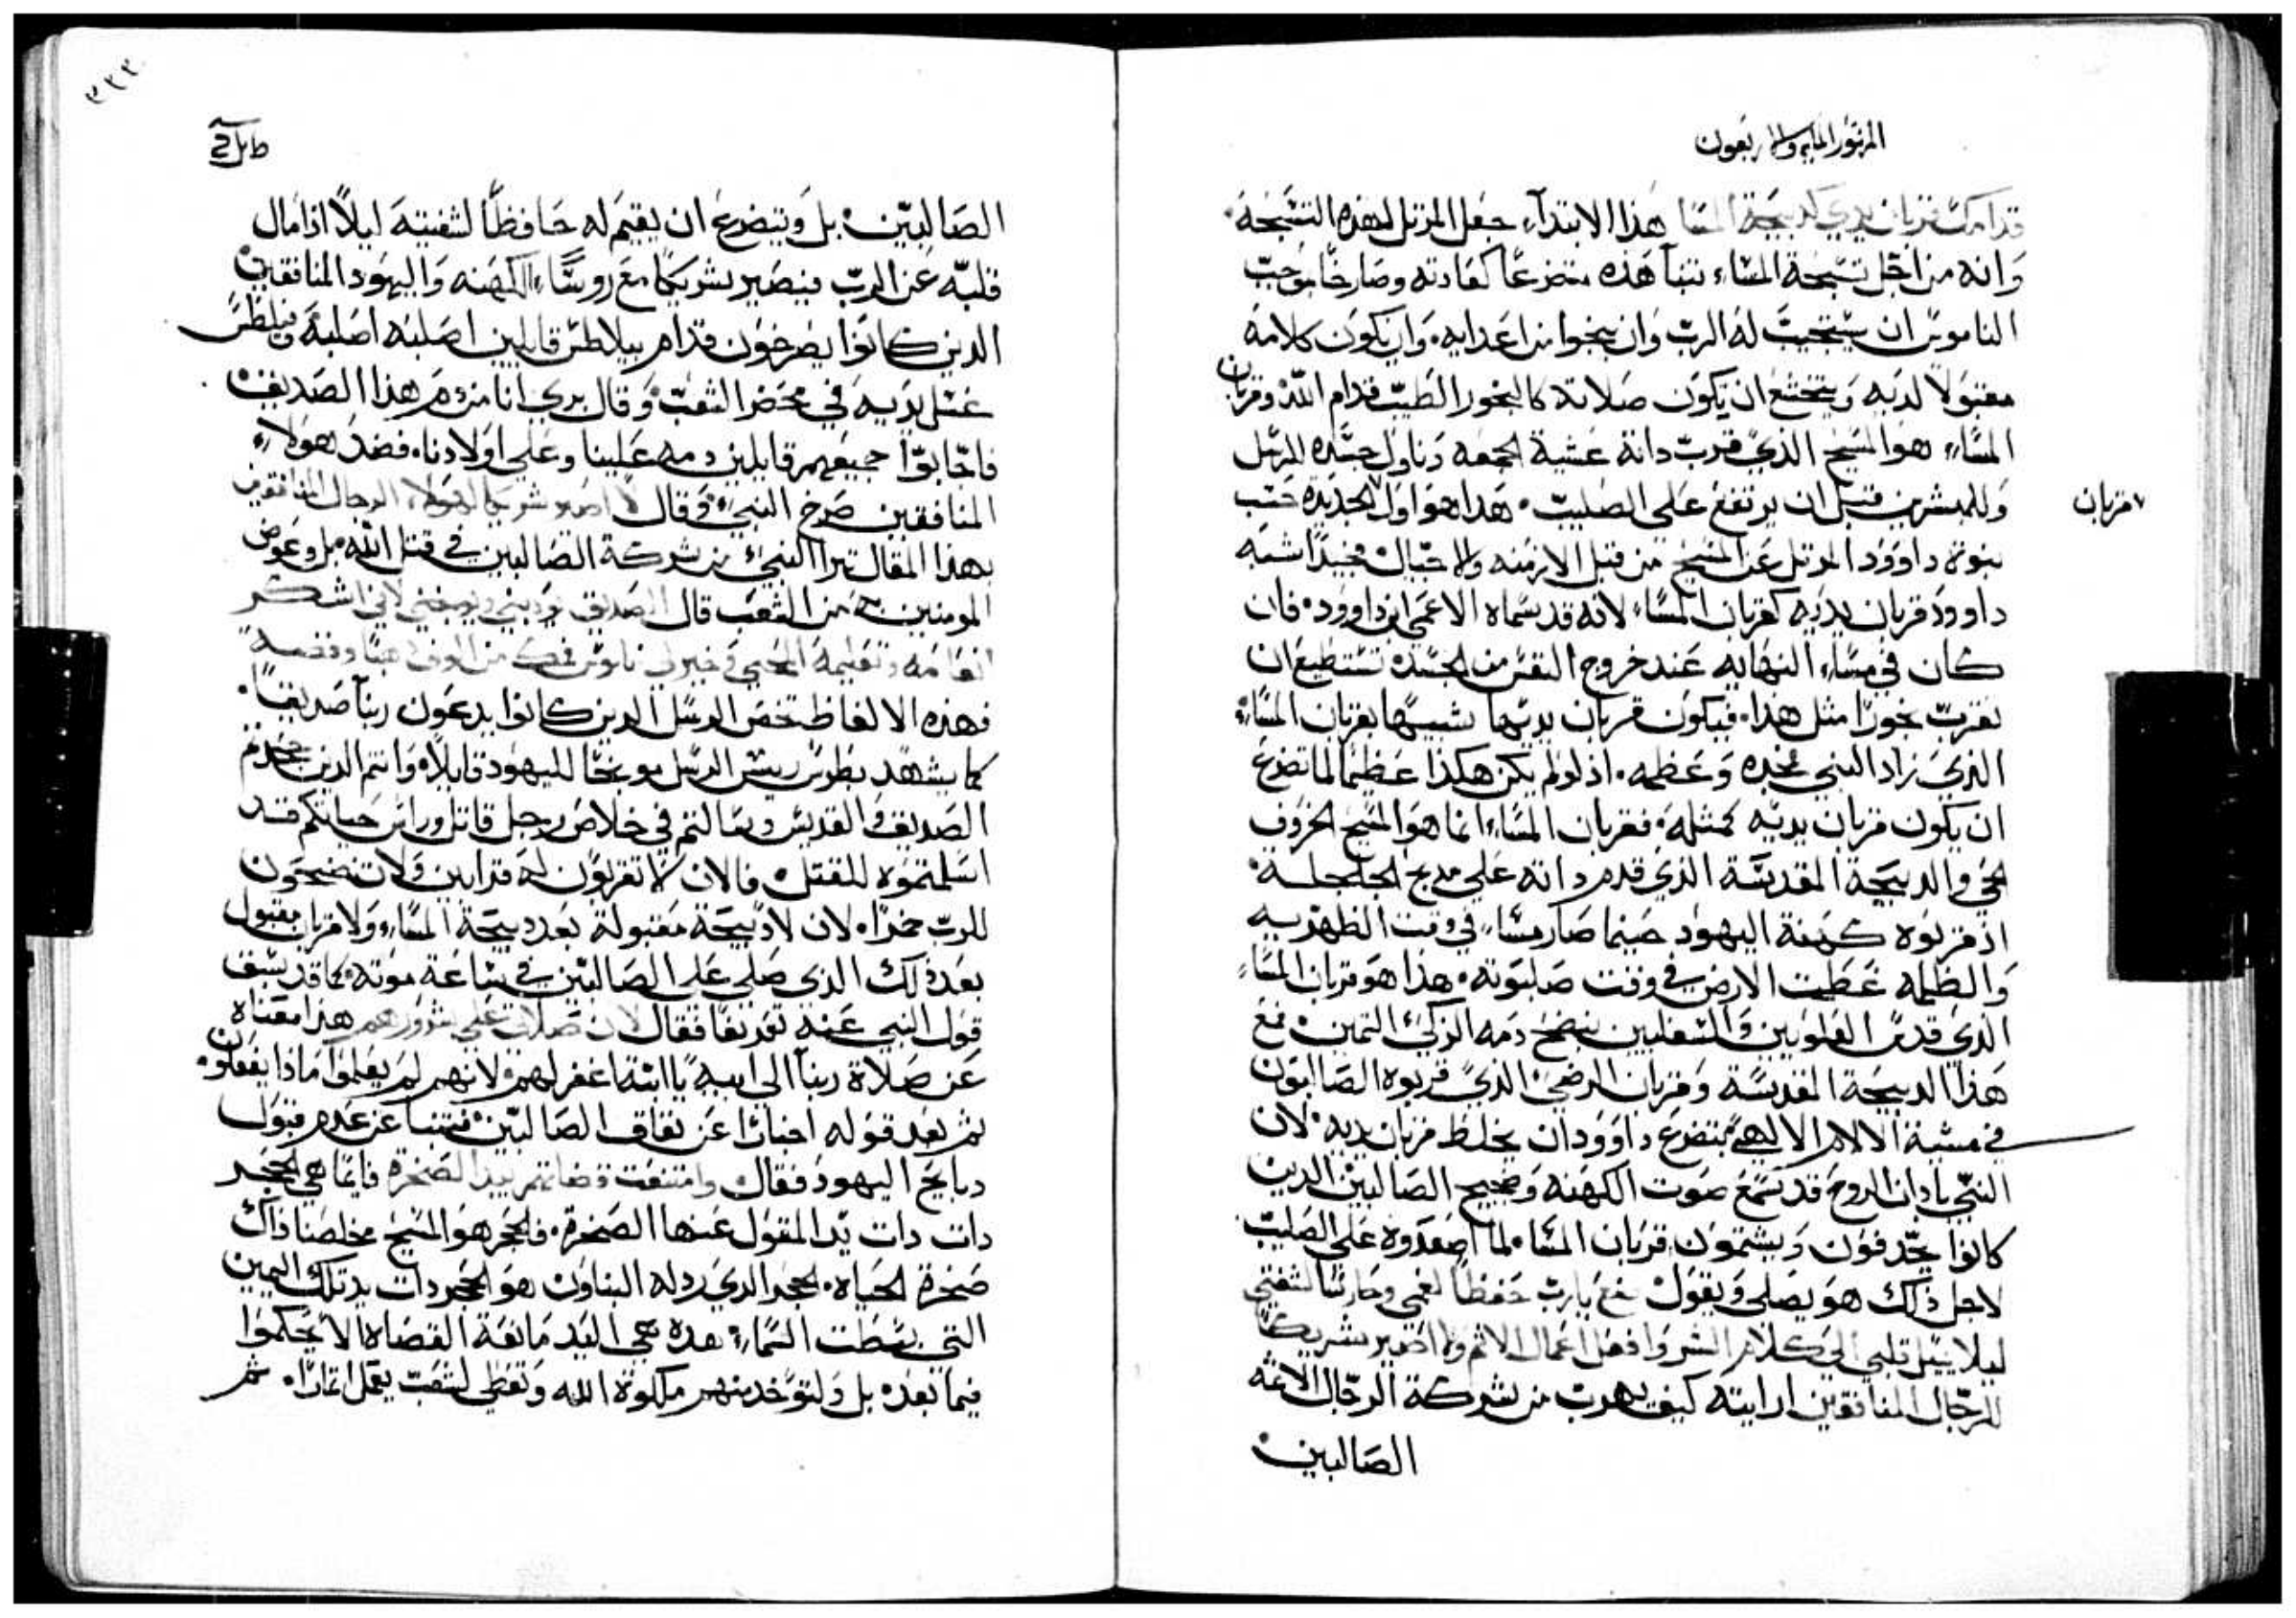 المزمور المايه والاربعون
قدامك قربان يدي كدبيحة المسا هذا الابتدآء جعل المرتل لهذه التسبحة
وانه من اجل تسبحة المساء تنبا هذه متضرعًا كعادته وصارخًا بوجب
الناموس ان يستجيب له الرب وان ينجوا من اعدايه وان يكون كلامه
مقبولاً لديه ويتخشع ان يكون صلاته كالبخور الطيب قدام الله وقربان
المساء هو المسيح الذي قرب داته عشية الجمعه وناول جسده للرسل
وللمبشرين قبل ان يرتفع على الصليب هدا هو اول الجديده حسب
قربان
نبوة داوود المرتل عن المسيح من قبل الازمنه والاجيال مجيدًا شبه
داوود قربان يديه كقربان المساء لانه قد سماه الاعمى ابن داوود فان
كان في مساء النهايه عند خروج النفس من الجسد تستطيع ان
تقرب بخورًا مثل هذا فيكون قربان يديها شبيهًا بقربان المساء
الذي زاد النبي مجده وعظمه اذ لو لم يكن هكذا عظيمًا لما تضرع
ان يكون قربان يديه كمثله فقربان المساء انما هو المسيح الخروف
الحي والدبيحة المقدسة الذي قدم داته على مدبح الجلجلة
اذ قربوه كهنة اليهود حينما صار مساء في وقت الظهر به
والظلمه غطت الارض في وقت صلبوته هذا هو قربان المساء
الذي قدس العلويين والسفليين بنضح دمه الزكي التمين مع
هذا الدبيحة المقدسة وقربان المرضي الذي قربوه الصالبون
في عشية الالام الالهي يتضرع داوود ان يخلط قربان يديه لان
النبي بادان الروح قد سمع صوت الكهنه وضجيج الصالبين الدين
كانوا يجدفون ويشتمون قربان المسا لما اصعدوه على الصليب
لاجل ذلك هو يصلي ويقول ضع يارب حفظًا لفمي وحارسًا لشفتي
ليلا يميل قلبي الى كلام الشر وافعل اعمال الاثم ولا اصير شريكًا
للرجال المنافقين ارايته كيف يهرب من شركة الرجال الاثمه
الصالبين
الصالبين بل ويتضرع ان يقيم له حافظًا لشفتيه ليلاً اذا مال
قلبه عن الرب فيصير شريكًا مع روساء الكهنه واليهود المنافقين
الدين كانوا يصرخون قدام بيلاطس قايلين اصلبه اصلبه وبيلاطس
غسل يديه في محضر الشعب وقال بري انا من دم هذا الصديق
فاجابوا جميعهم قايلين دمه علينا وعلى اولادنا فضد هولاء
المنافقين صرخ النبي وقال لا اصير شريكًا لهولاء الرجال المنافقين
بهذا المقال تبرا النبي من شركة الصالبين في قتل الله بل وعوض
المومنين من الشعب قال الصديق يودبني ويوبخني لاني اشكر
فهذه الالفاظ تخص الرسل الدين كانوا يدعون ربنا صديقًا
كما يشهد بطرس ريس الرسل موبخًا لليهود قايلاً وانتم الدين جحدتم
الصديق والقديس وسالتم في خلاص رجل قاتل وراس حياتكم قد
اسلمتموه للقتل فالان لا تقربون له قرابين ولا تنضحون
للرب خمرًا لان لا دبيحة مقبولة بعد دبيحة المساء ولا قربان مقبول
بعد ذلك الذي صلى على الصالبين في ساعة موته كما قد سبق
قول النبي عنه تعريفًا فقال لان صلاتي على شرورهم هذا معناه
عن صلاة ربنا الى ابيه يا ابتا اغفر لهم لانهم لم يعلموا ماذا يفعلون
ثم بعد قوله اخبارًا عن نفاق الصالبين فتنبا عن عدم قبول
دبايح اليهود فقال وامتنعت قضاتهم بيد الصخرة فايما هي الحجر
دات دات يد المقول عنها الصخرة فالحجر هو المسيح مخلصنا ذاك
صخرة الحياه الحجر الدي ردله البناون هو الحجر دات يد تلك اليمين
التي بسطت السماء هده هي اليد مانعة القضاه الا يحكموا
فيما بعد بل ولتوخد منهم ملكوة الله وتعطى لشعب يعمل اثمارًا ثم